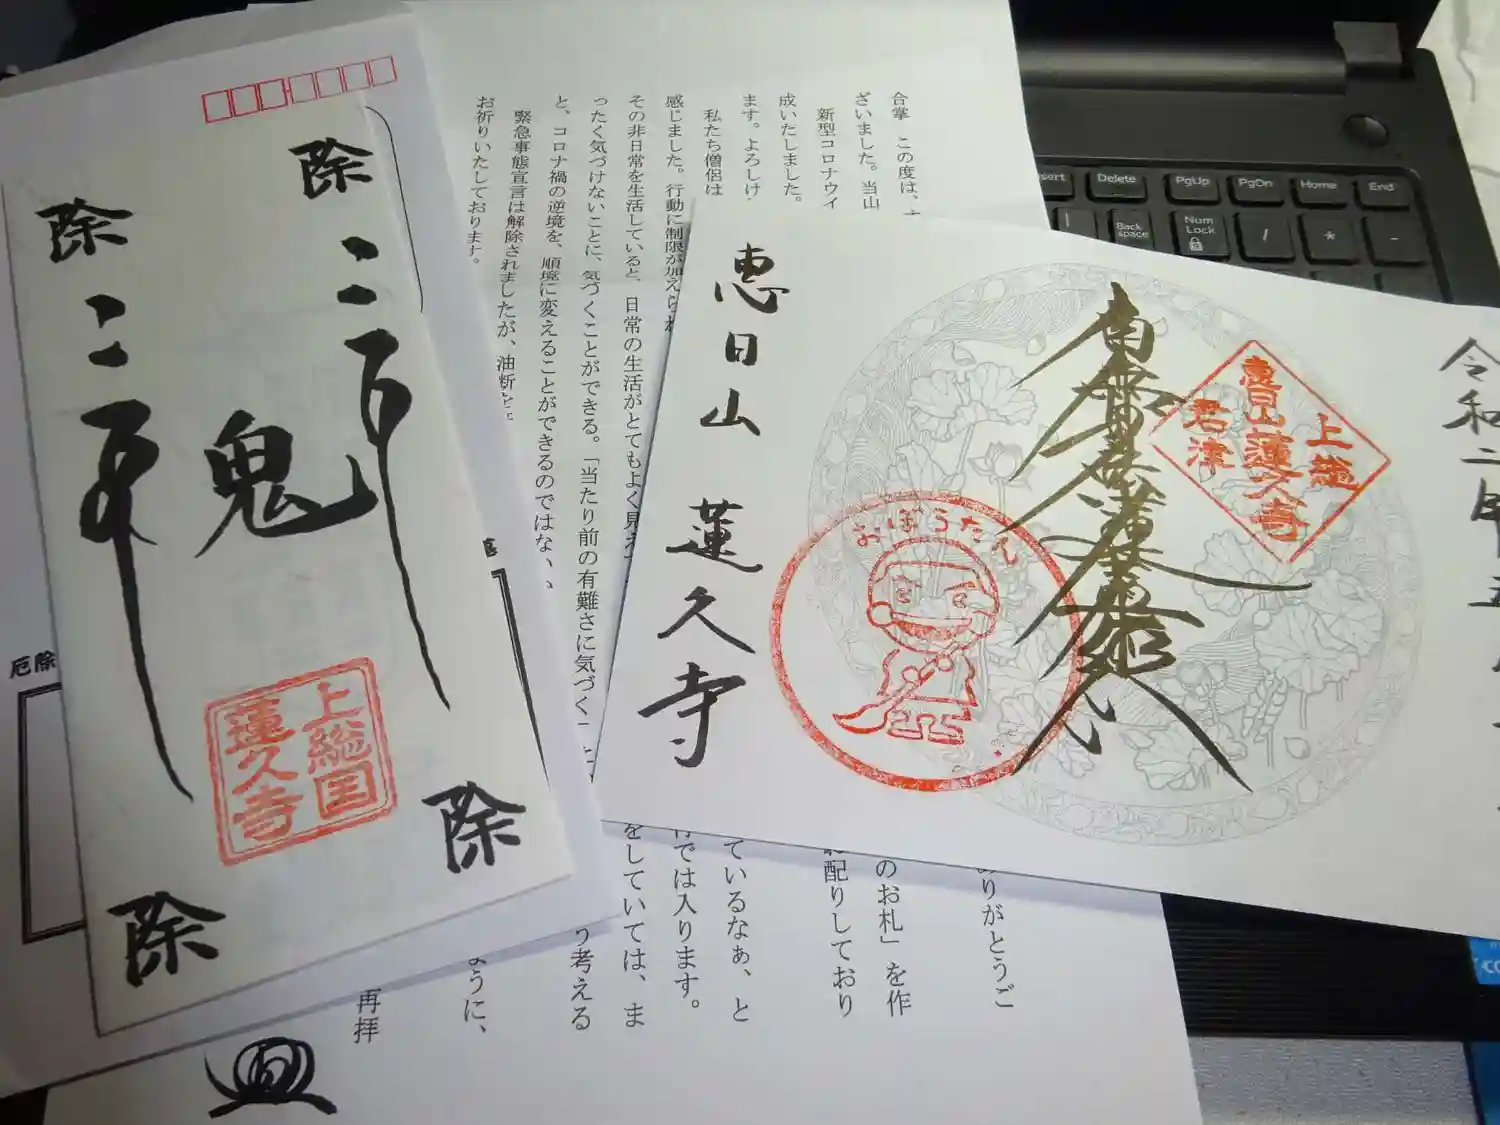 除
除
二
二
鬼
上総国
蓮久寺
除
除
厄除
合掌 この度は、
ざいました。当山
新型コロナウイ
成いたしました。
ます。よろしけ
私たち僧侶は
感じました。行動に制限が加えられ
その非日常を生活していると、日常の生活がとてもよく見え
ったく気づけないことに、気づくことができる。「当たり前の有難さに気づく
と、コロナ禍の逆境を、順境に変えることができるのではない、
緊急事態宣言は解除されましたが、油断を
お祈りいたしております。
りがとうご
のお札」を作
お配りしており
ているなぁ、と
では入ります。
をしていては、ま
う考える
ように、
再拝
恵日山 蓮久寺
おぼうたん
南無妙法蓮華経
上総
恵日山蓮久寺
君津
令和二年五月
Insert
Delete
PgUp
PgDn
Home
End
Back space
Num Lock
/
*
-